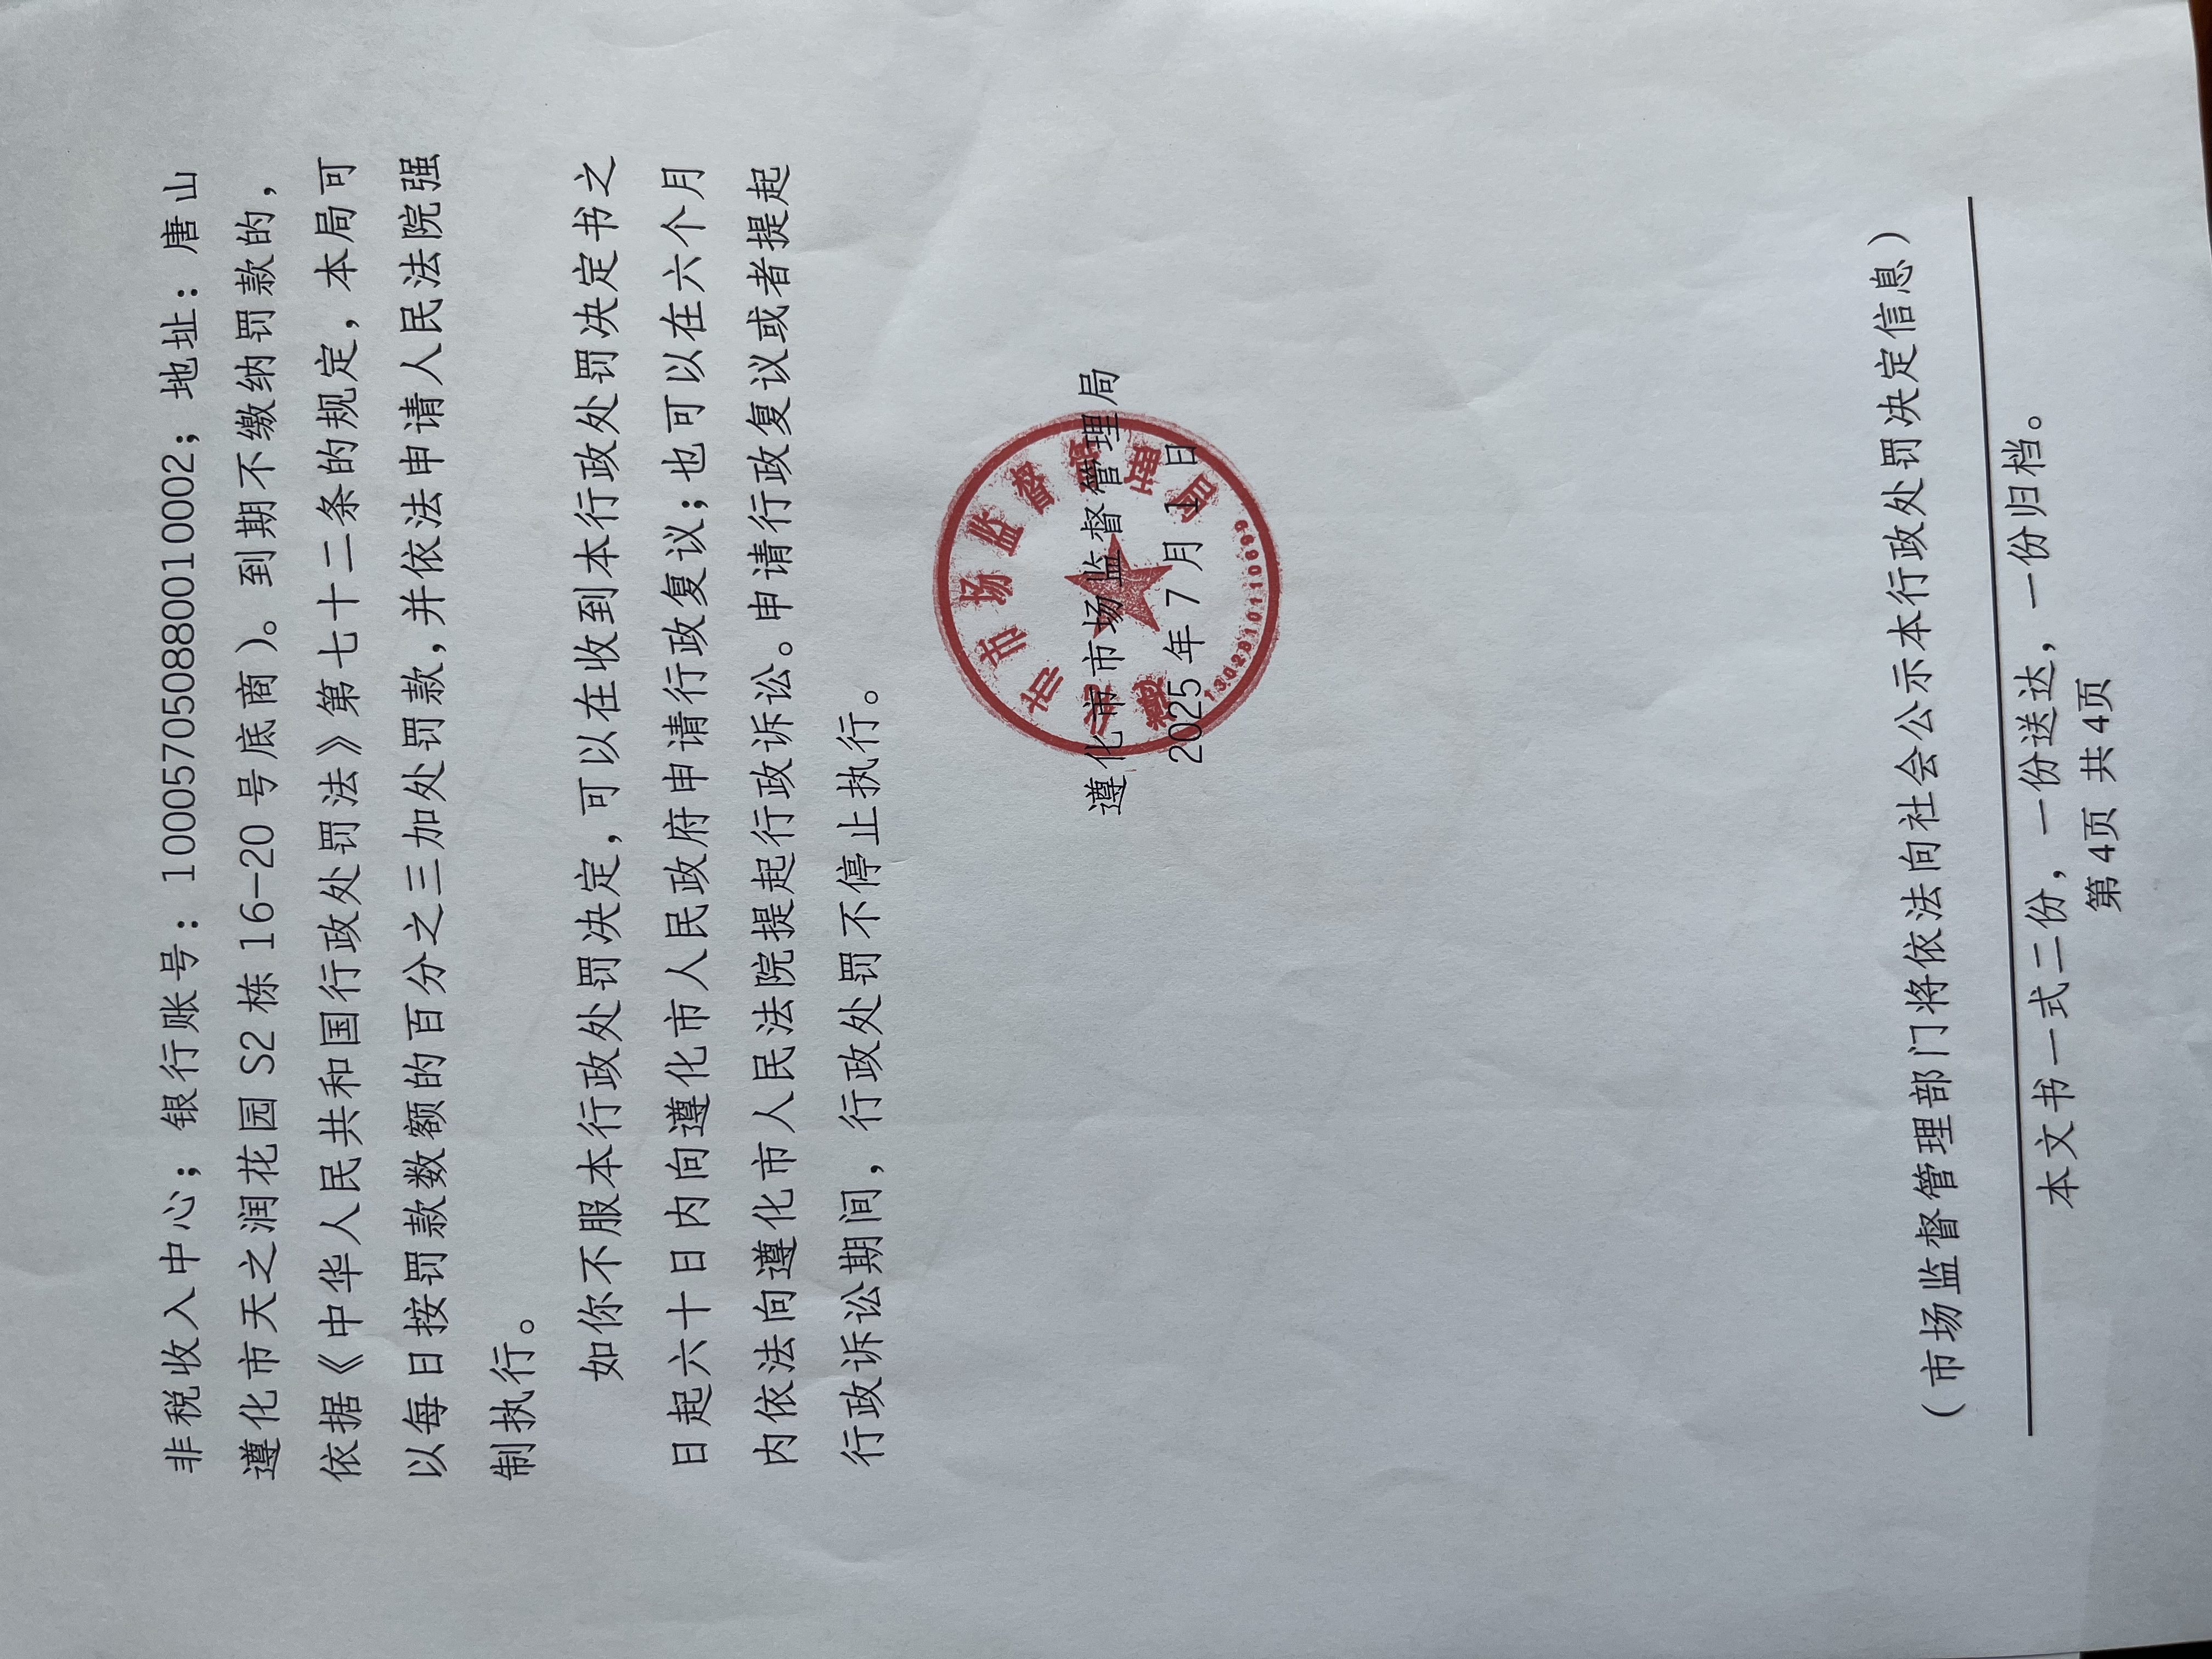 非税收入中心；银行账号：100057050880010002；地址：唐山
遵化市天之润花园 S2 栋 16-20 号底商）。到期不缴纳罚款的，
依据《中华人民共和国行政处罚法》第七十二条的规定，本局可
以每日按罚款数额的百分之三加处罚款，并依法申请人民法院强
制执行。
如你不服本行政处罚决定，可以在收到本行政处罚决定书之
日起六十日内向遵化市人民政府申请行政复议；也可以在六个月
内依法向遵化市人民法院提起行政诉讼。申请行政复议或者提起
行政诉讼期间，行政处罚不停止执行。
遵化市市场监督管理局
2025 年 7 月 1 日
遵化市市场监督管理局
（市场监督管理部门将依法向社会公示本行政处罚决定信息）
本文书一式二份，一份送达，一份归档。
第4页 共4页